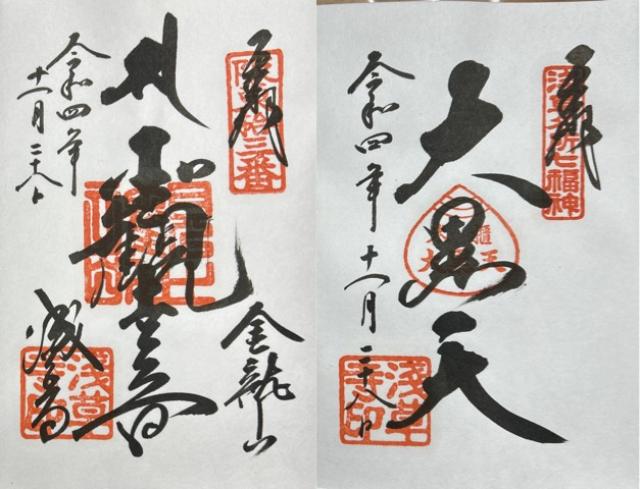 奉拝
坂東拾三番
聖観世音
金龍山
浅草寺
令和四年
十一月二十八日
浅草寺印
奉拝
浅草名所七福神
大黒天
令和四年十一月二十八日
浅草寺印